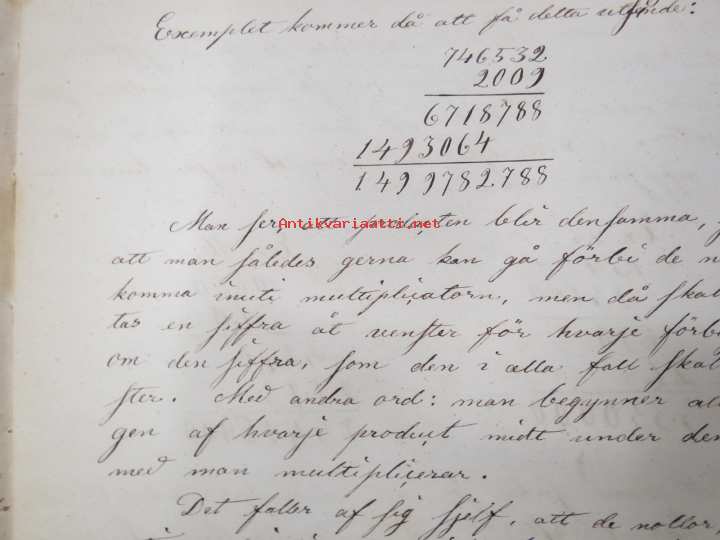 Exemplet kommer då att få detta utseende:
746532
2009
6718788
1493064
1499782788
Man ser, att producten blir densamma,
Antikvariaatti.net
att man således gerna kan gå förbi de
komma inuti multiplicatorn, men då skal
tas en siffra åt venster för hvarje förbi
om den siffra, som den i alla fall skal
ster. Med andra ord: man begynner all
gen af hvarje product midt under den
med man multiplicerar.
Det faller af sig sjelf, att de nollor,